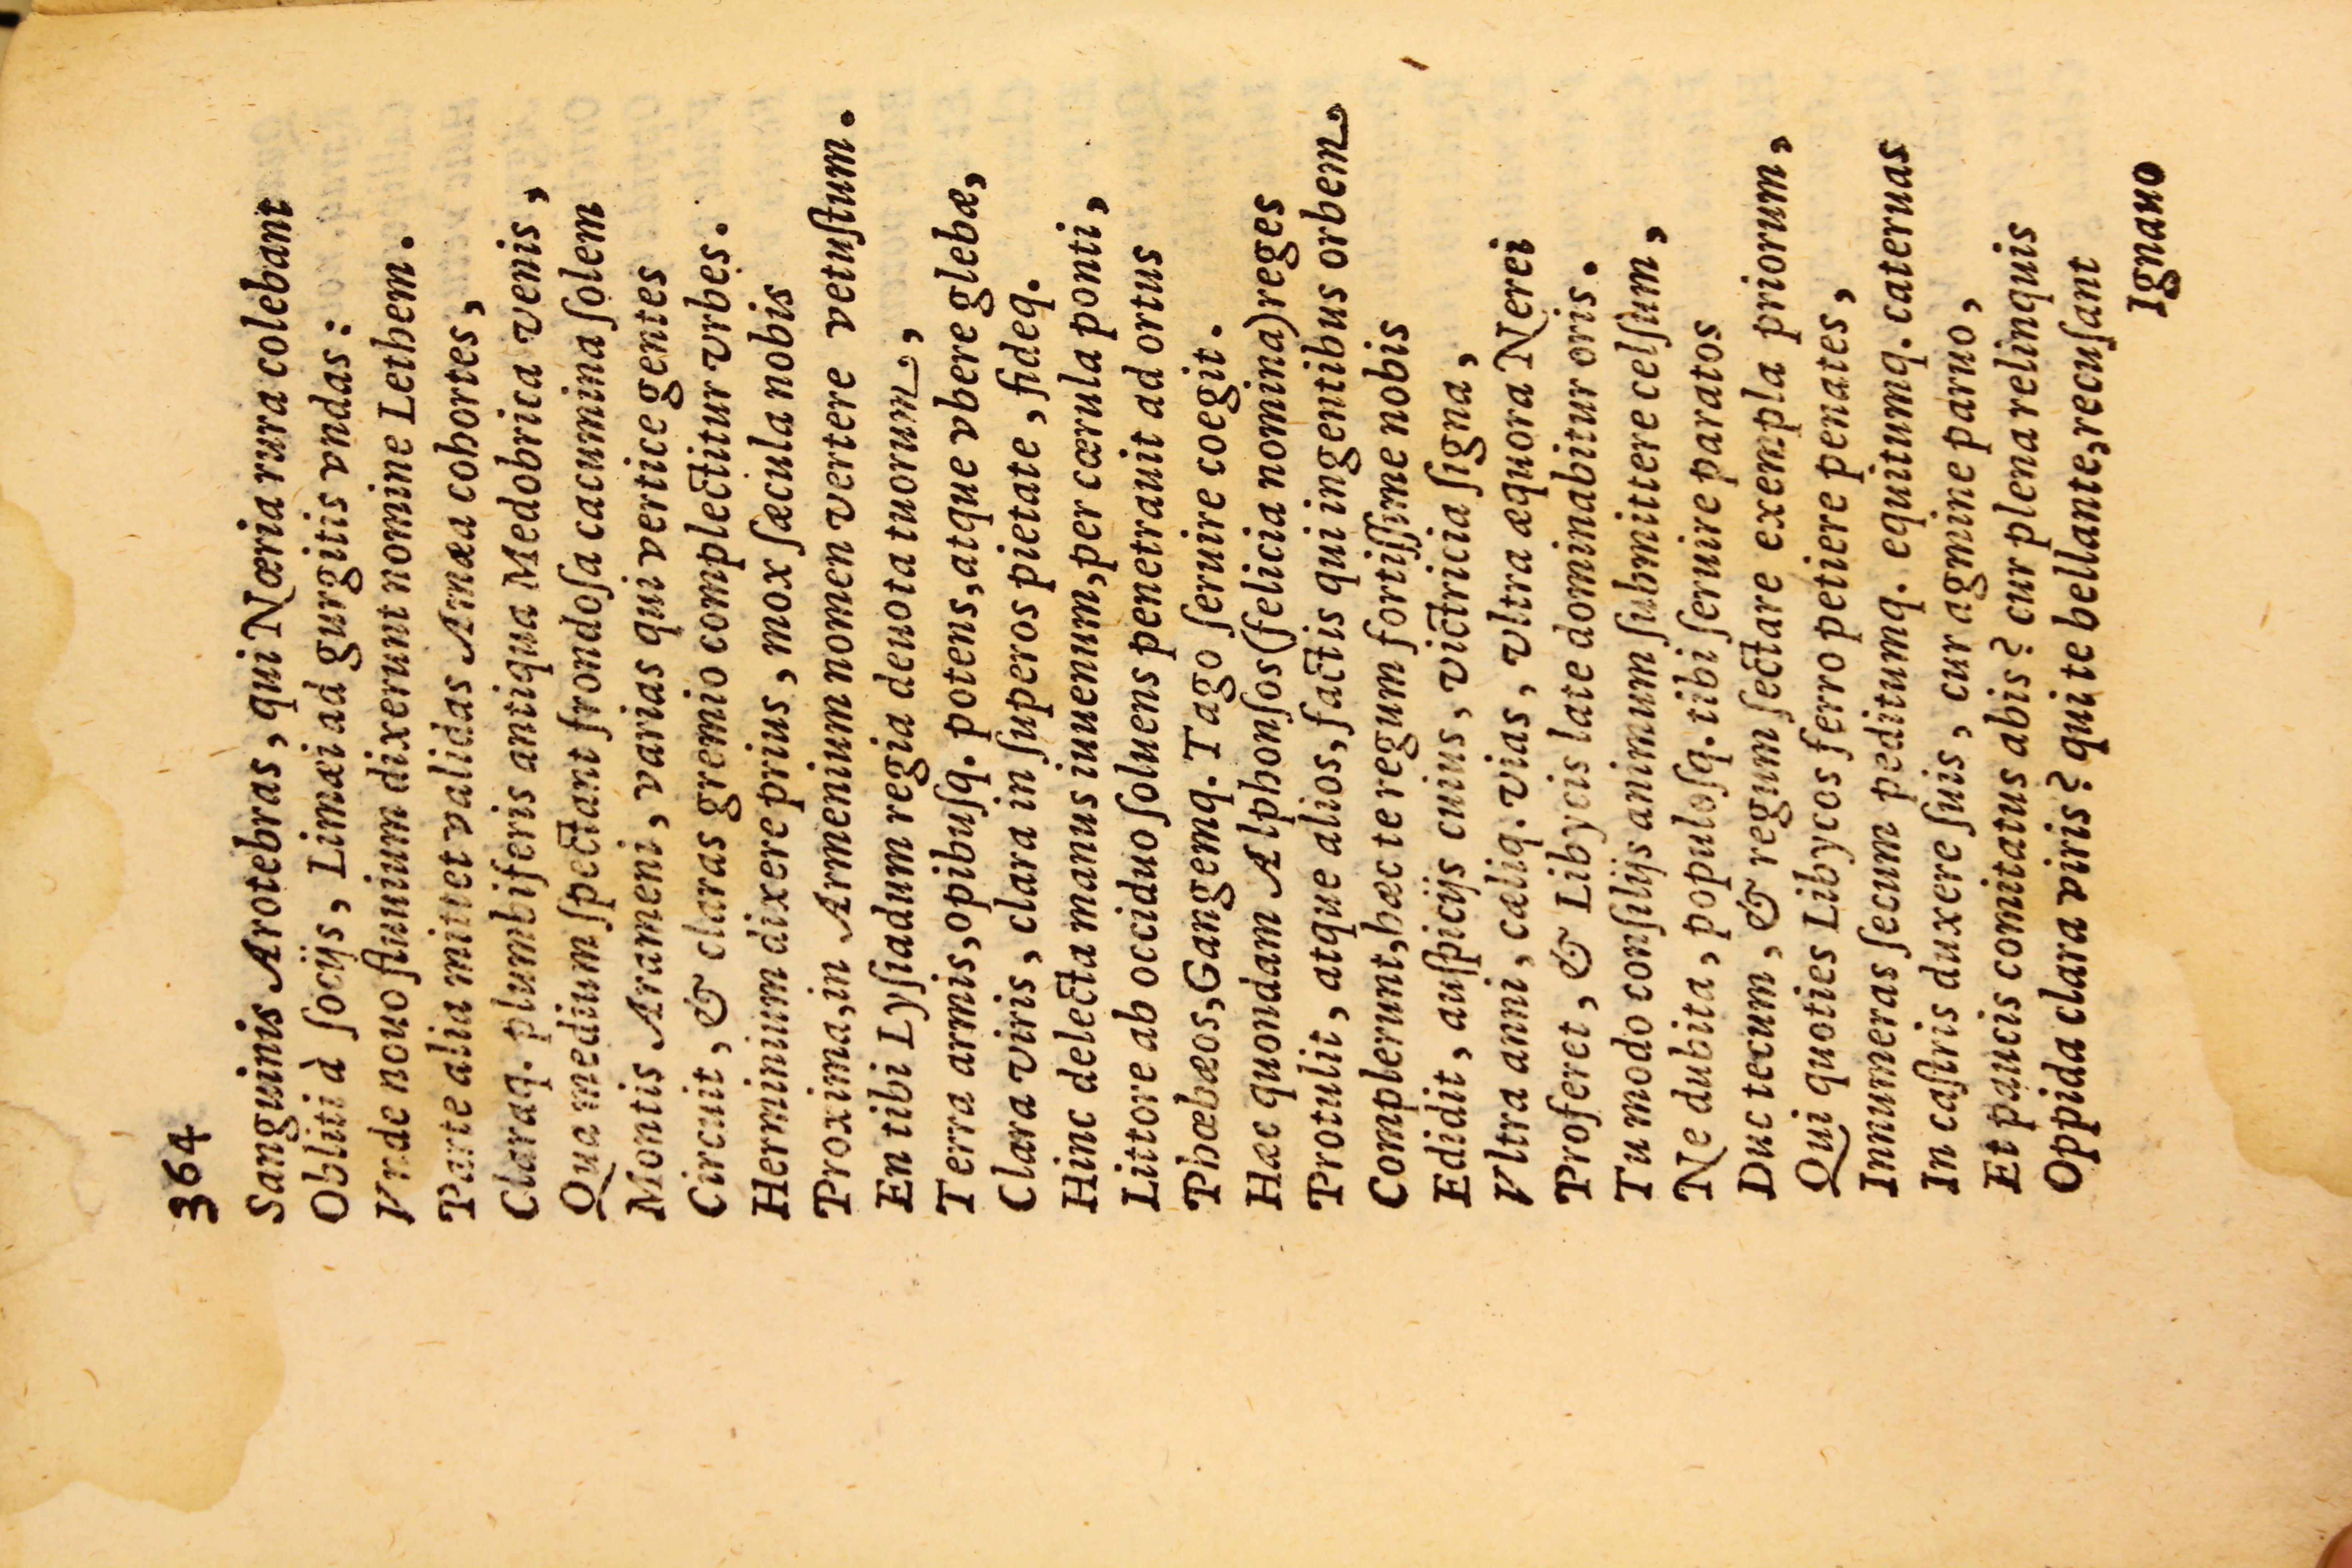 364
Sanguinis Arotebras, qui Næria rura colebant
Obliti à ſocijs, Limæi ad gurgitis vndas:
Vnde nouo fluuium dixerunt nomine Lethem.
Parte alia mittet validas Amæa cohortes,
Claraq. plumbiferis antiqua Medobrica venis,
Qua medium ſpectant frondoſa cacumina ſolem
Montis Arameni, varias qui vertice gentes
Circuit, & claras gremio complectitur vrbes.
Herminium dixere prius, mox ſæcula nobis
Proxima, in Armenium nomen vertere vetuſtum.
En tibi Lyſiadum regia deuota tuorum,
Terra armis, opibuſq. potens, atque vbere glebæ,
Clara viris, clara in ſuperos pietate, fideq.
Hinc delecta manus iuuenum, per cærula ponti,
Littore ab occiduo ſoluens penetrauit ad ortus
Phœbæos, Gangemq. Tago ſeruire coegit.
Hæc quondam Alphonſos (felicia nomina) reges
Protulit, atque alios, factis qui ingentibus orbem,
Complerunt, hæc te regum fortiſſime nobis
Edidit, auſpicijs cuius, victricia ſigna,
Vltra anni, cæliq. vias, vltra æquora Nerei
Proferet, & Libycis late dominabitur oris.
Tu modo conſilijs animum ſubmittere celſum,
Ne dubita, populoſq. tibi ſeruire paratos
Duc tecum, & regum ſectare exempla priorum,
Qui quoties Libycos ferro petiere penates,
Innumeras ſecum peditumq. equitumq. cateruas
In caſtris duxere ſuis, cur agmine paruo,
Et paucis comitatus abis? cur plena relinquis
Oppida clara viris? qui te bellante, recuſant
Ignauo